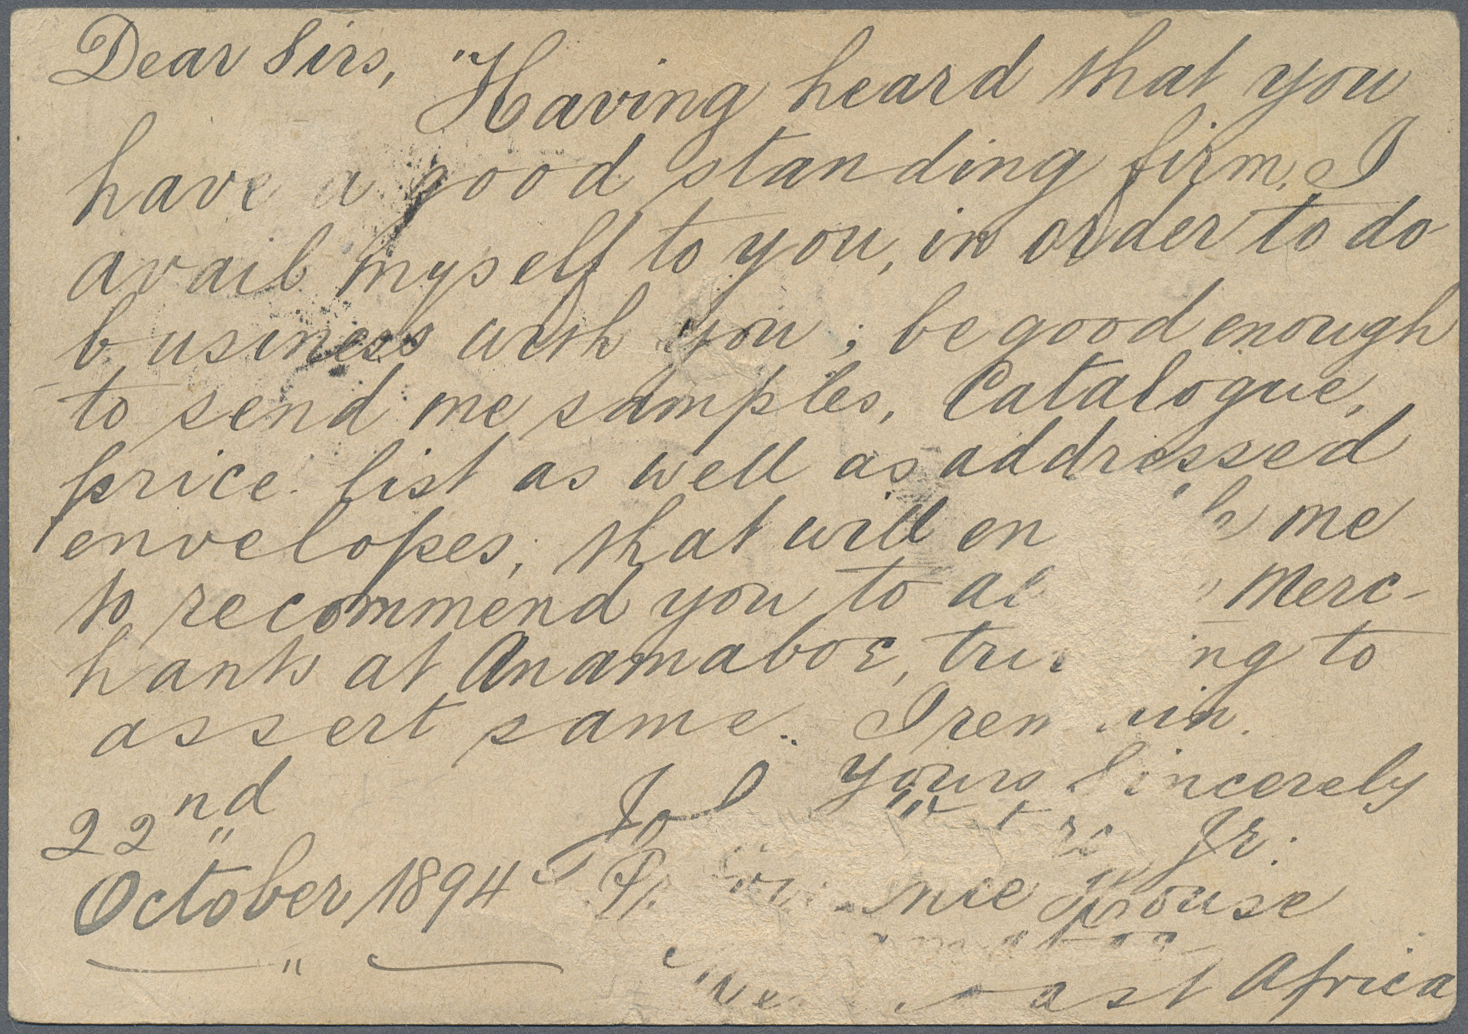 Dear Sirs,
"Having heard that you
have a good standing firm, I
avail myself to you, in order to do
business with you; be good enough
to send me samples, Catalogue,
price list as well as addressed
envelopes, that will me
to recommend you to Merc-
hants at Anamaboe, to
assert same. I remain.
Yours Sincerely
22nd
Jr.
October 1894
House
Africa